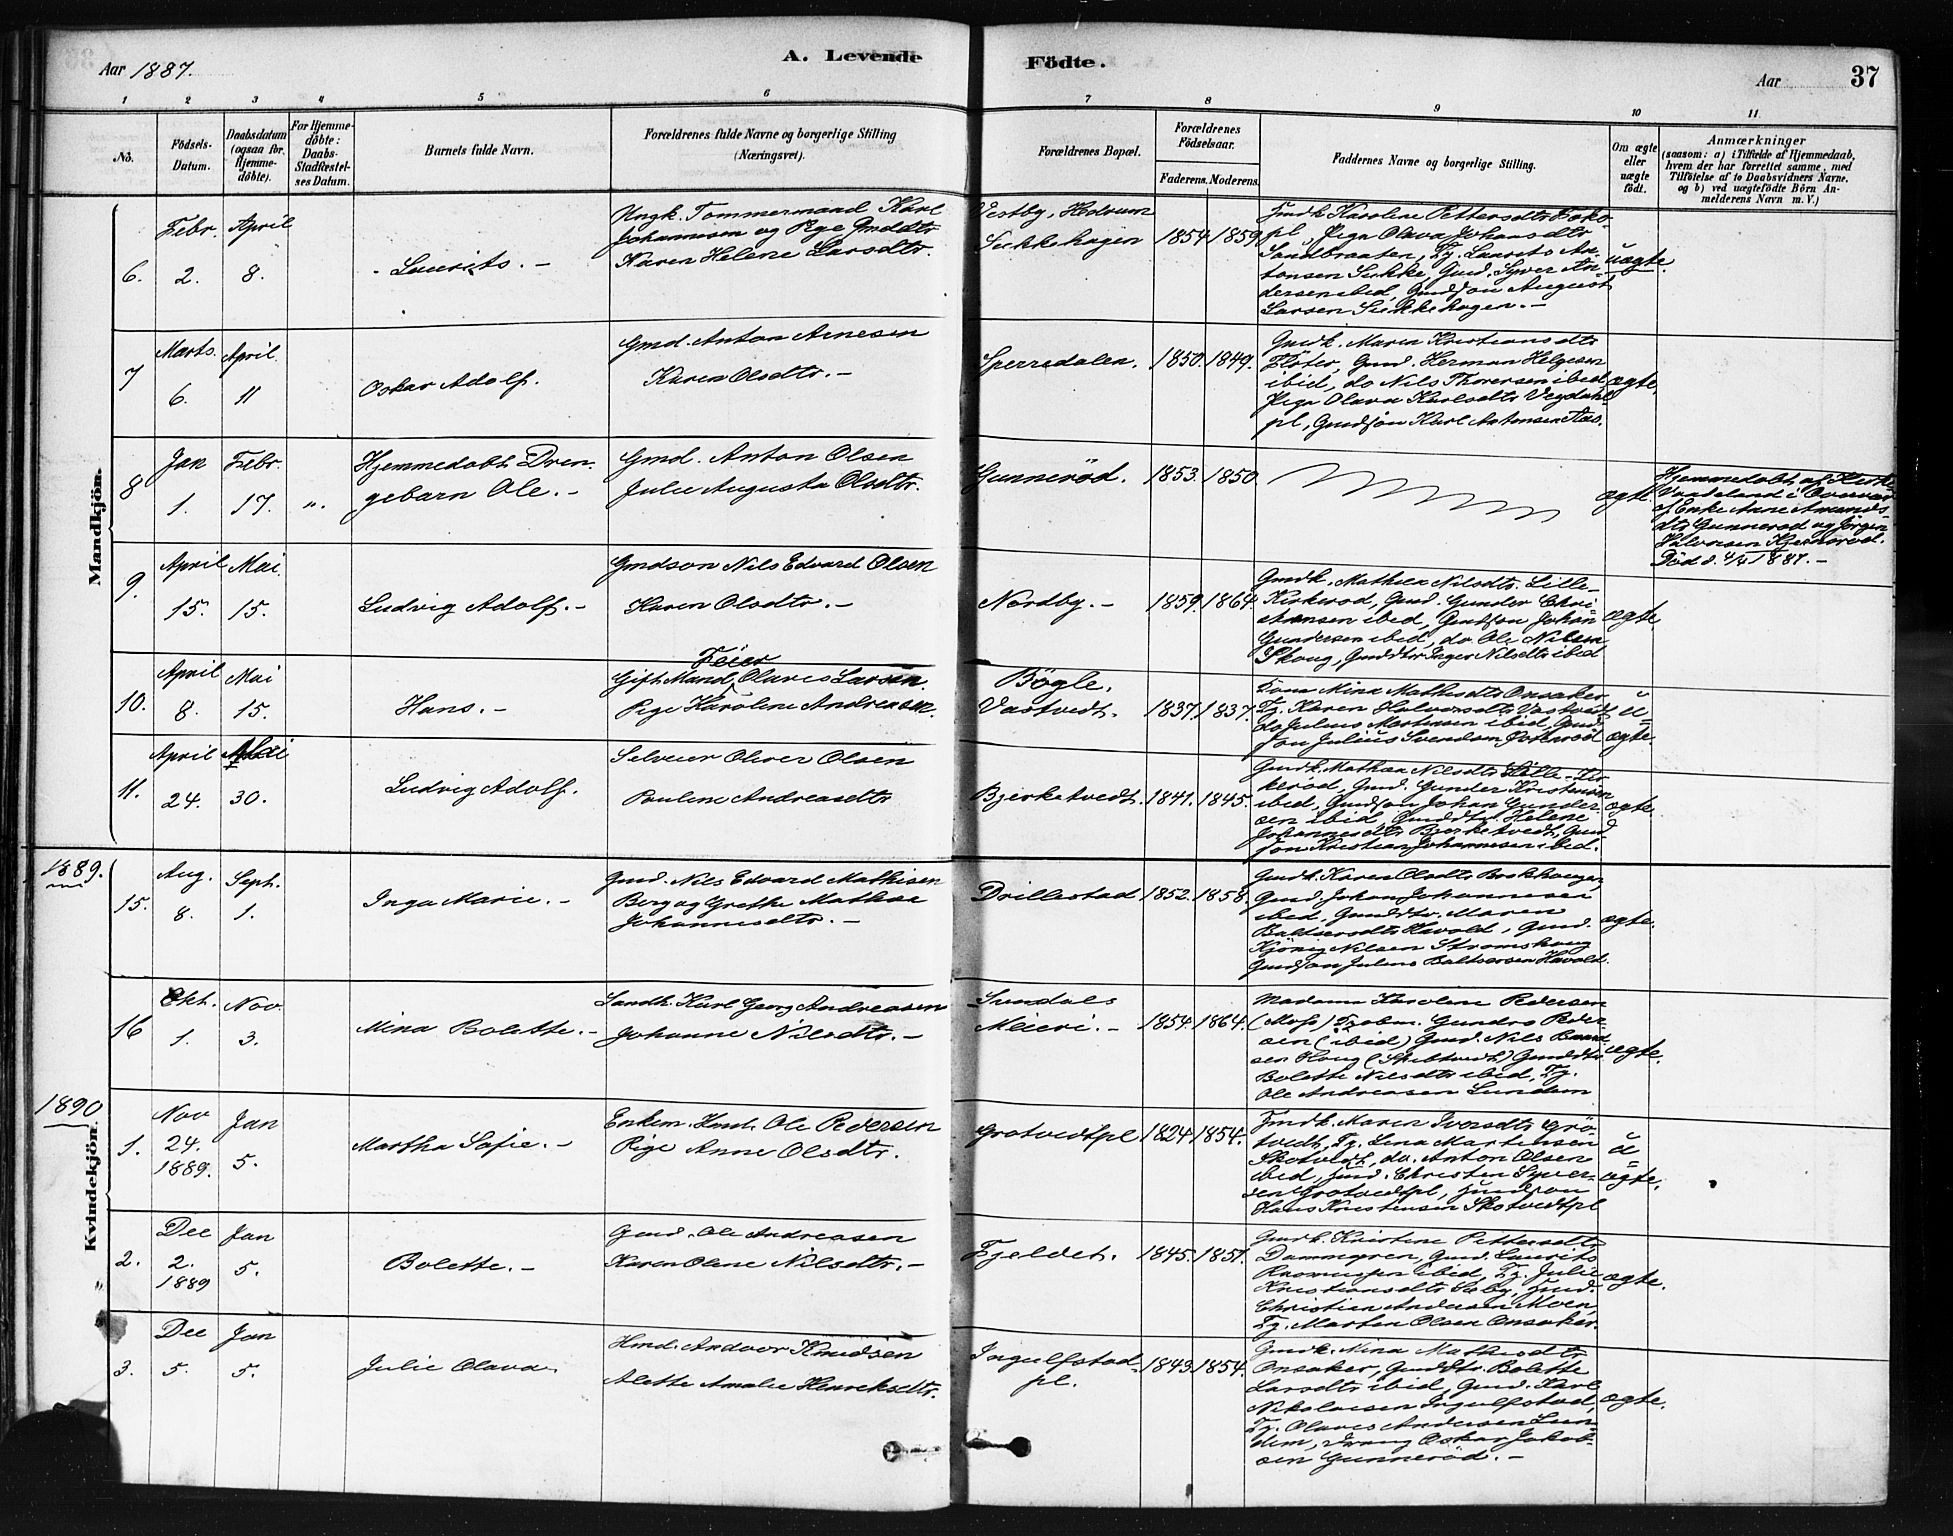 Aar 1887.
A. Levende
Födte.
Aar
37
1 2 3 4 5 6 7 8 9 10 11
No.
Födsels-
Datum.
Daabsdatum
(ogsaa for
Hjemme-
döbte).
For Hjemme-
döbte:
Daabs-
Stadfæstel-
ses Datum.
Barnets fulde Navn.
Forældrenes fulde Navne og borgerlige Stilling
(Næringsvei).
Forældrenes Bopæl.
Forældrenes
Födselsaar.
Faderens. Moderens.
Faddernes Navne og borgerlige Stilling.
Om ægte
eller
uægte
födt.
Anmærkninger
(saasom: a) i Tilfælde af Hjemmedaab,
hvem der har forrettet samme, med
Tilföielse af to Daabsvidners Navne,
og b) ved uægtefödte Börn An-
melderens Navn m. V.)
Mandkjön.
6.
Febr.
2.
April
8.
Laurits. -
Ungk. Tømmermand Karl
Johannesen og Pige Gmddtr.
Karen Helene Larsdtr.
Vestby, Hedrum
Sukkehagen
1854 1859
Gmdk. Karoline Pettersdtr
pl, Pige Olava Johansdtr
Sandbraaten, Tj. Laurits An-
tonsen Sukke, Gmd. Syver An-
dersen ibid, Gmdsøn August
Larsen Sukkehagen. -
uægte.
7
Marts.
6.
April.
11
Oskar Adolf.
Gmd. Anton Arnesen
Karen Olsdtr. -
Sperredalen.
1850. 1849.
Gmdk. Maren Kristiansdtr
Fløter, Gmd. Herman Helgesen
ibid, do Nils Thoresen ibid,
Pige Olava Karlsdtr Vegdahl-
pl, Gmdsøn Karl Antonsen Aas.
ægte.
8
Jan
1.
Febr.
17.
".
Hjemmedøbt Dren-
gebarn Ole. -
Gmd. Anton Olsen
Julie Augusta Olsdtr.
Gunnerød.
1853. 1850
ægte.
Hjemmedøbt af
Vaaseland i Overvær
af Enke Anne Amunds-
dtr Gunnerød og Jørgen
Halvorsen Kjernerød.
Død d. 4/4 1887. -
9.
April
15.
Mai.
15.
Ludvig Adolf. -
Gmdsøn Nils Edvard Olsen
Karen Olsdtr. -
Nordby. -
1859. 1864
Gmdk. Mathea Nilsdtr. Lille-
Kirkerød, Gmd. Gunder Chri-
stensen ibid, Gmdsøn Johan
Gundersen ibid, do. Ole Nilsen
Skoug, Gmddtr Inger Nilsdtr ibid
ægte.
10.
April
8.
Mai
15.
Hans. -
Feier
Gift Mand Olaves Larsen.
Pige Karoline Andreasen.
Bøgle.
Vastvedt.
1837. 1837.
Kone Mina Mathisdtr Onsaker
Tj. Karen Halvorsdtr Vastvedt
do Julius Martinsen ibid, Gmd-
søn Julius Svendsen Østerød
u-
ægte.
11.
April
24.
Mai
30.
Ludvig Adolf.
Selveier Oliver Olsen
Pauline Andreasdtr
Bjerketvedt.
1841. 1845.
Gmdk. Mathea Nilsdtr Lille-Kir-
kerød, Gmd. Gunder Kristensen
ibid, Gmdsøn Johan Gunder-
sen ibid, Gmddtr. Helene
Johannesdtr Bjerketvedt, Gmd-
søn Kristian Johannesen ibid.
ægte
1889.
15.
Aug.
8.
Sept.
1.
Inga Marie. -
Gmd. Nils Edvard Mathisen
Berg og Grethe Mathea
Johannesdtr. -
Drillestad
1852. 1858.
Gmdk. Karen Olsdtr
Gmd. Johan Johannesen
ibid, Gmddtr. Maren
Baltsersdtr Havold, Gmd.
Kjönig Nilsen Strømskoug
Gmdsøn Julius Baltsersen Havold.
ægte.
16
Okt.
1.
Nov.
3.
Mina Bolette. -
Landh. Karl Georg Andreasen
Johanne Nilsdtr. -
Sundals
Meieri. -
1854. 1864.
Madame Karoline Pedersen
(Moss) Gundro Peder-
sen (ibid) Gmd. Nils
sen Houg (Skibtvedt) Gmddtr
Bolette Nilsdtr ibid, Tj.
Ole Andreasen Lundem
ægte.
1890
Kvindekjön.
1.
Nov
24.
1889.
Jan
5.
Martha Sofie. -
Enkem. Hmd. Ole Pedersen
Pige Anne Olsdtr.
Grøtvedtpl
1824. 1854.
Gmdk. Maren Iversdtr Grø-
tvedt, Tj. Lina Martinsen
Skotvedt, do. Anton Olsen
ibid, Hmd. Christen Syver-
sen Grøtvedtpl, Hmdsøn
Hans Kristensen Skotvedtpl
u=
ægte.
2.
Dec
2.
1889
Jan
5.
Bolette. -
Gmd. Ole Andreasen
Karen Oline Nilsdtr. -
Fjeldet.
1845. 1851.
Gmdk. Kristine Pettersdtr
Dammyren, Gmd. Laurits
Rasmussen ibid, Tj. Julie
Kristiansdtr Sæby, Hmd.
Christian Andersen Moen,
Tj. Marten Olsen Onsaker.
ægte.
3.
Dec
5.
Jan
5.
Julie Olava.
Hmd. Andvor Knudsen
Alette Amalie Henriksdtr.
Ingulfstad-
pl.
1843. 1854.
Gmdk. Mina Mathisdtr
Onsaker, Gmddtr. Bolette
Larsdtr ibid, Gmd. Karl
Nikolaisen Ingulfstad,
Tj. Olaves Andersen Lun-
dem, Dreng Oskar Jakob-
sen Gunnerød. -
ægte.